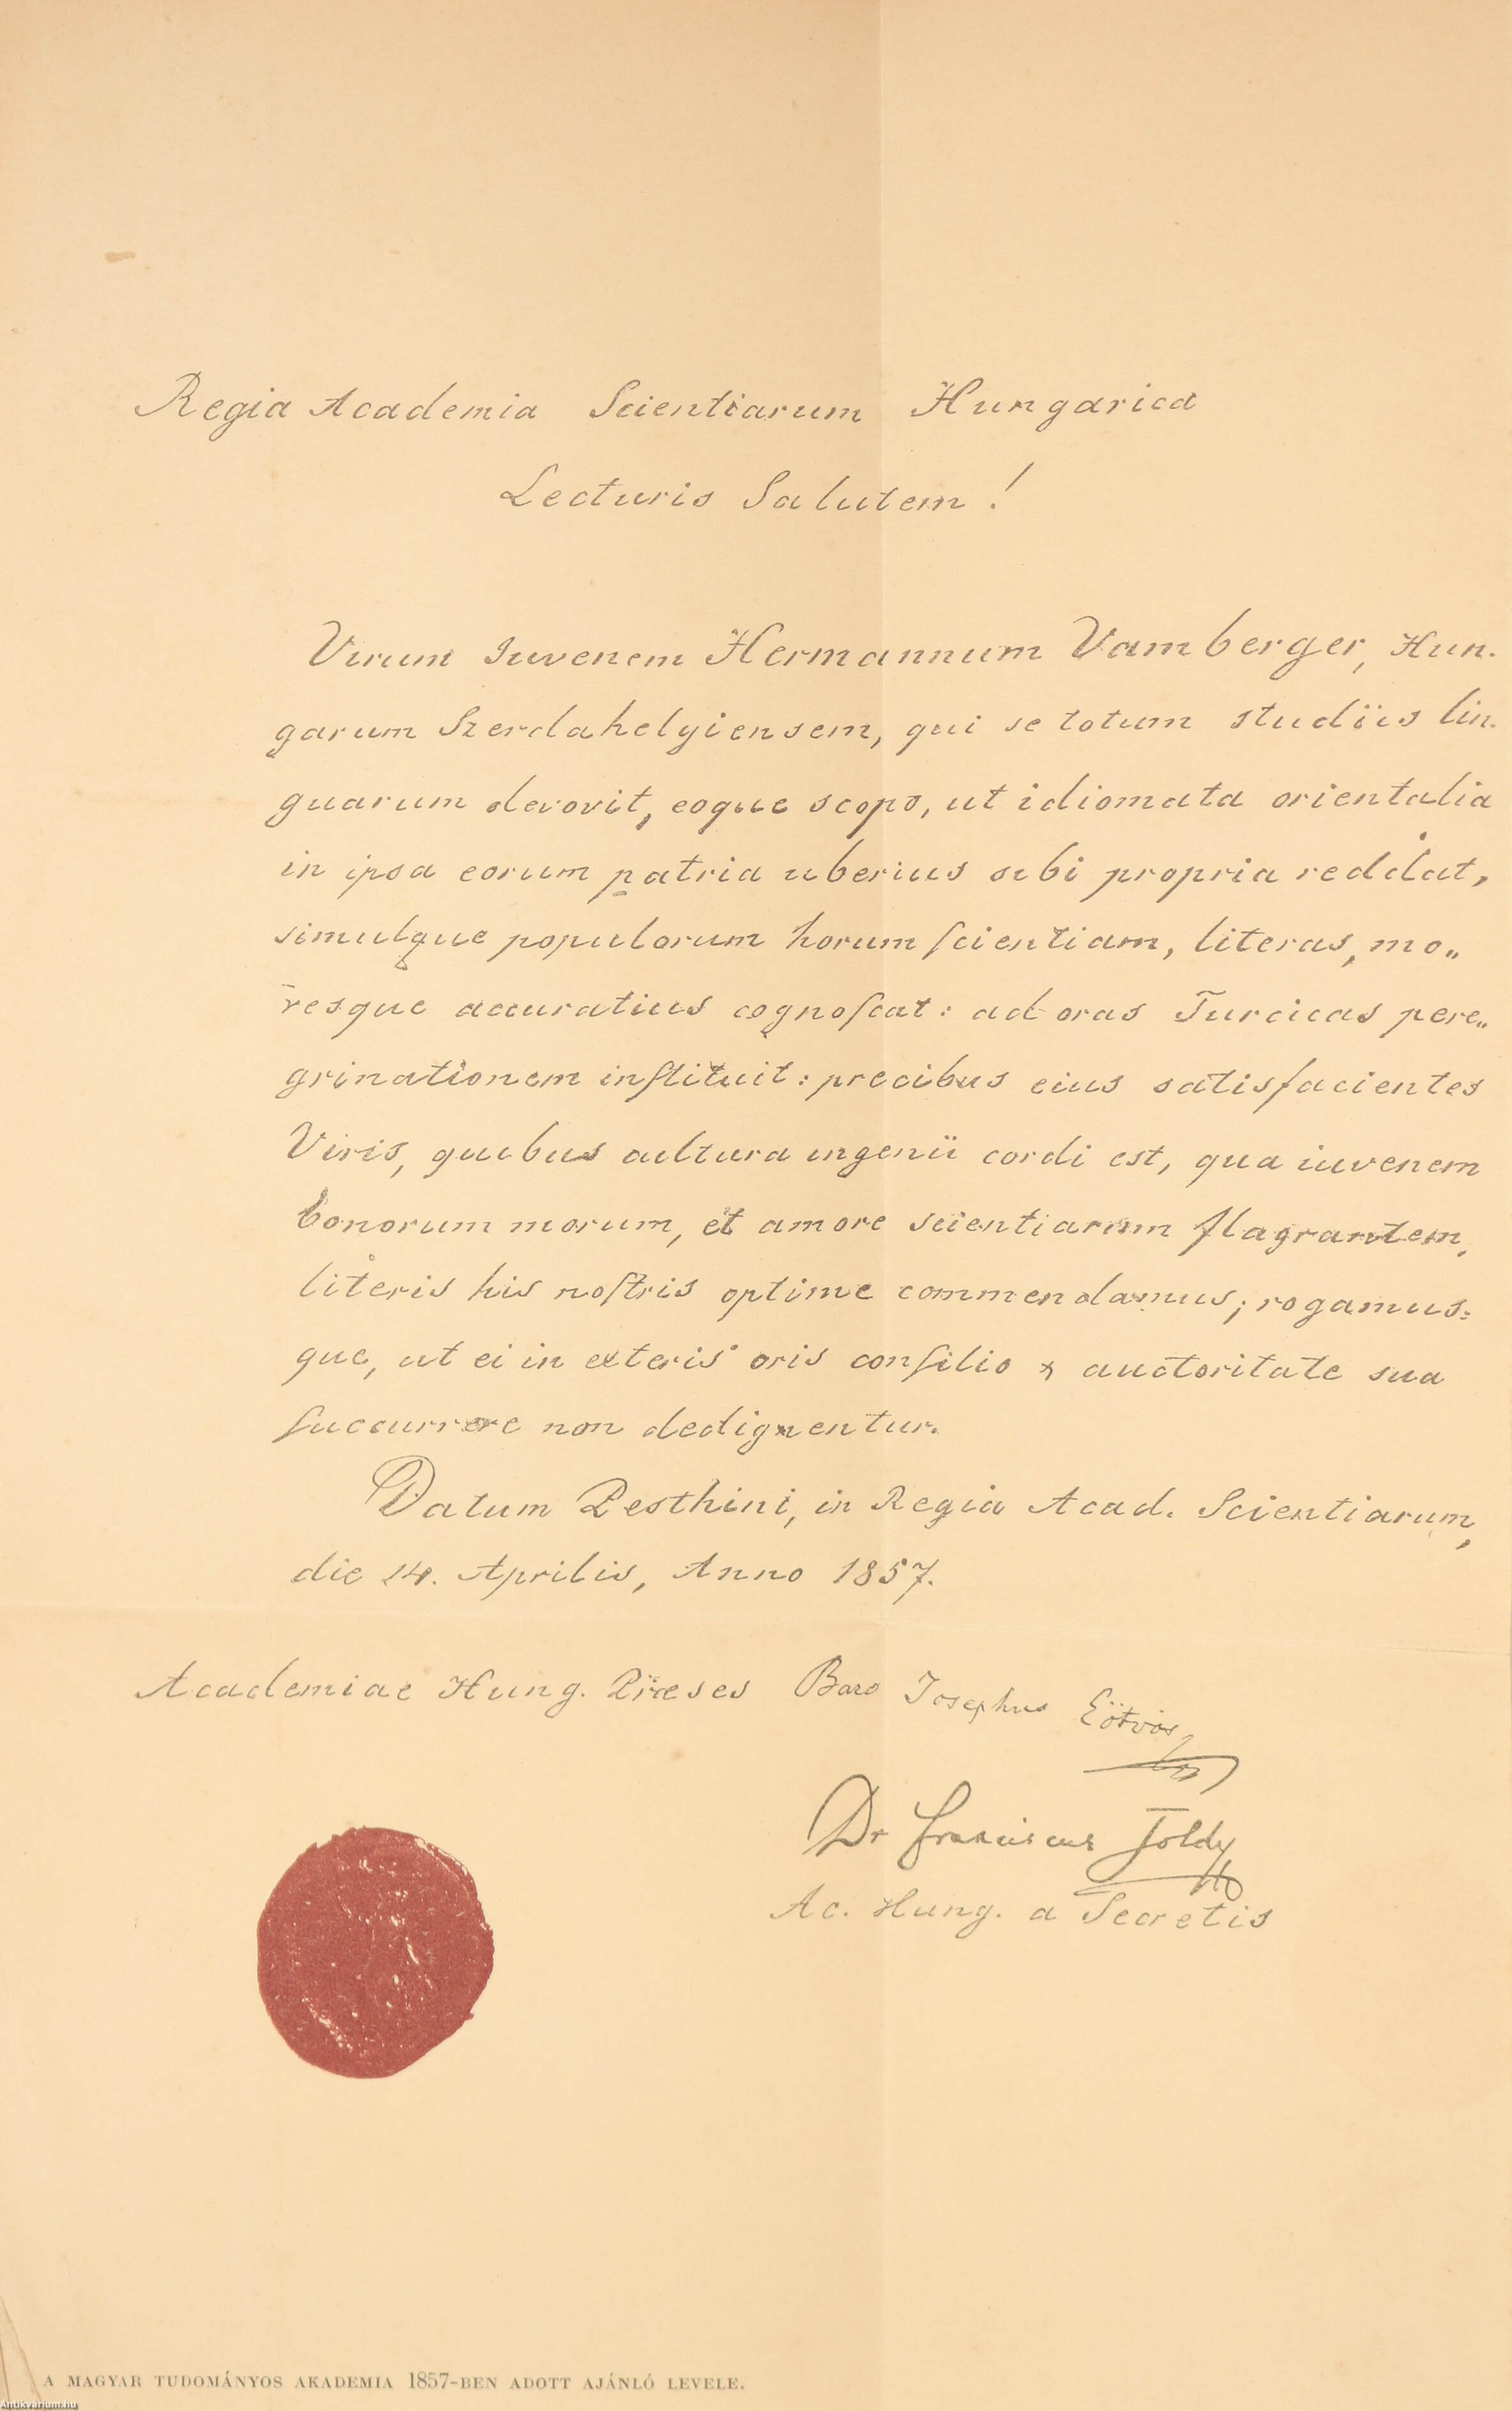 Regia Academia Scientiarum Hungarica
Lecturis Salutem!
Virum Iuvenem Hermannum Vamberger, Hun-
garum Szerdahelyiensem, qui se totum studiis lin-
guarum devovit, eoque scopo, ut idiomata orientalia
in ipsa eorum patria uberius sibi propria reddat,
simulque populorum horum ſcientiam, literas, mo„
resque accuratius cognoſcat: ad oras Turcicas pere„
grinationem inſtituit: precibus eius satisfacientes
Viris, quibus cultura ingenii cordi est, qua iuvenem
bonorum morum, et amore scientiarum flagrantem,
literis his noſtris optime commendamus; rogamus=
que, ut ei in exteris oris conſilio & auctoritate sua
ſuccurrere non dedignentur.
Datum Pesthini, in Regia Acad. Scientiarum,
die 14. Aprilis, Anno 1857.
Academiae Hung. Præses Baro Josephus Eötvös
Dr Franciscus Toldy
Ac. Hung. a Secretis
A MAGYAR TUDOMÁNYOS AKADEMIA 1857-BEN ADOTT AJÁNLÓ LEVELE.
Antikvarium.hu